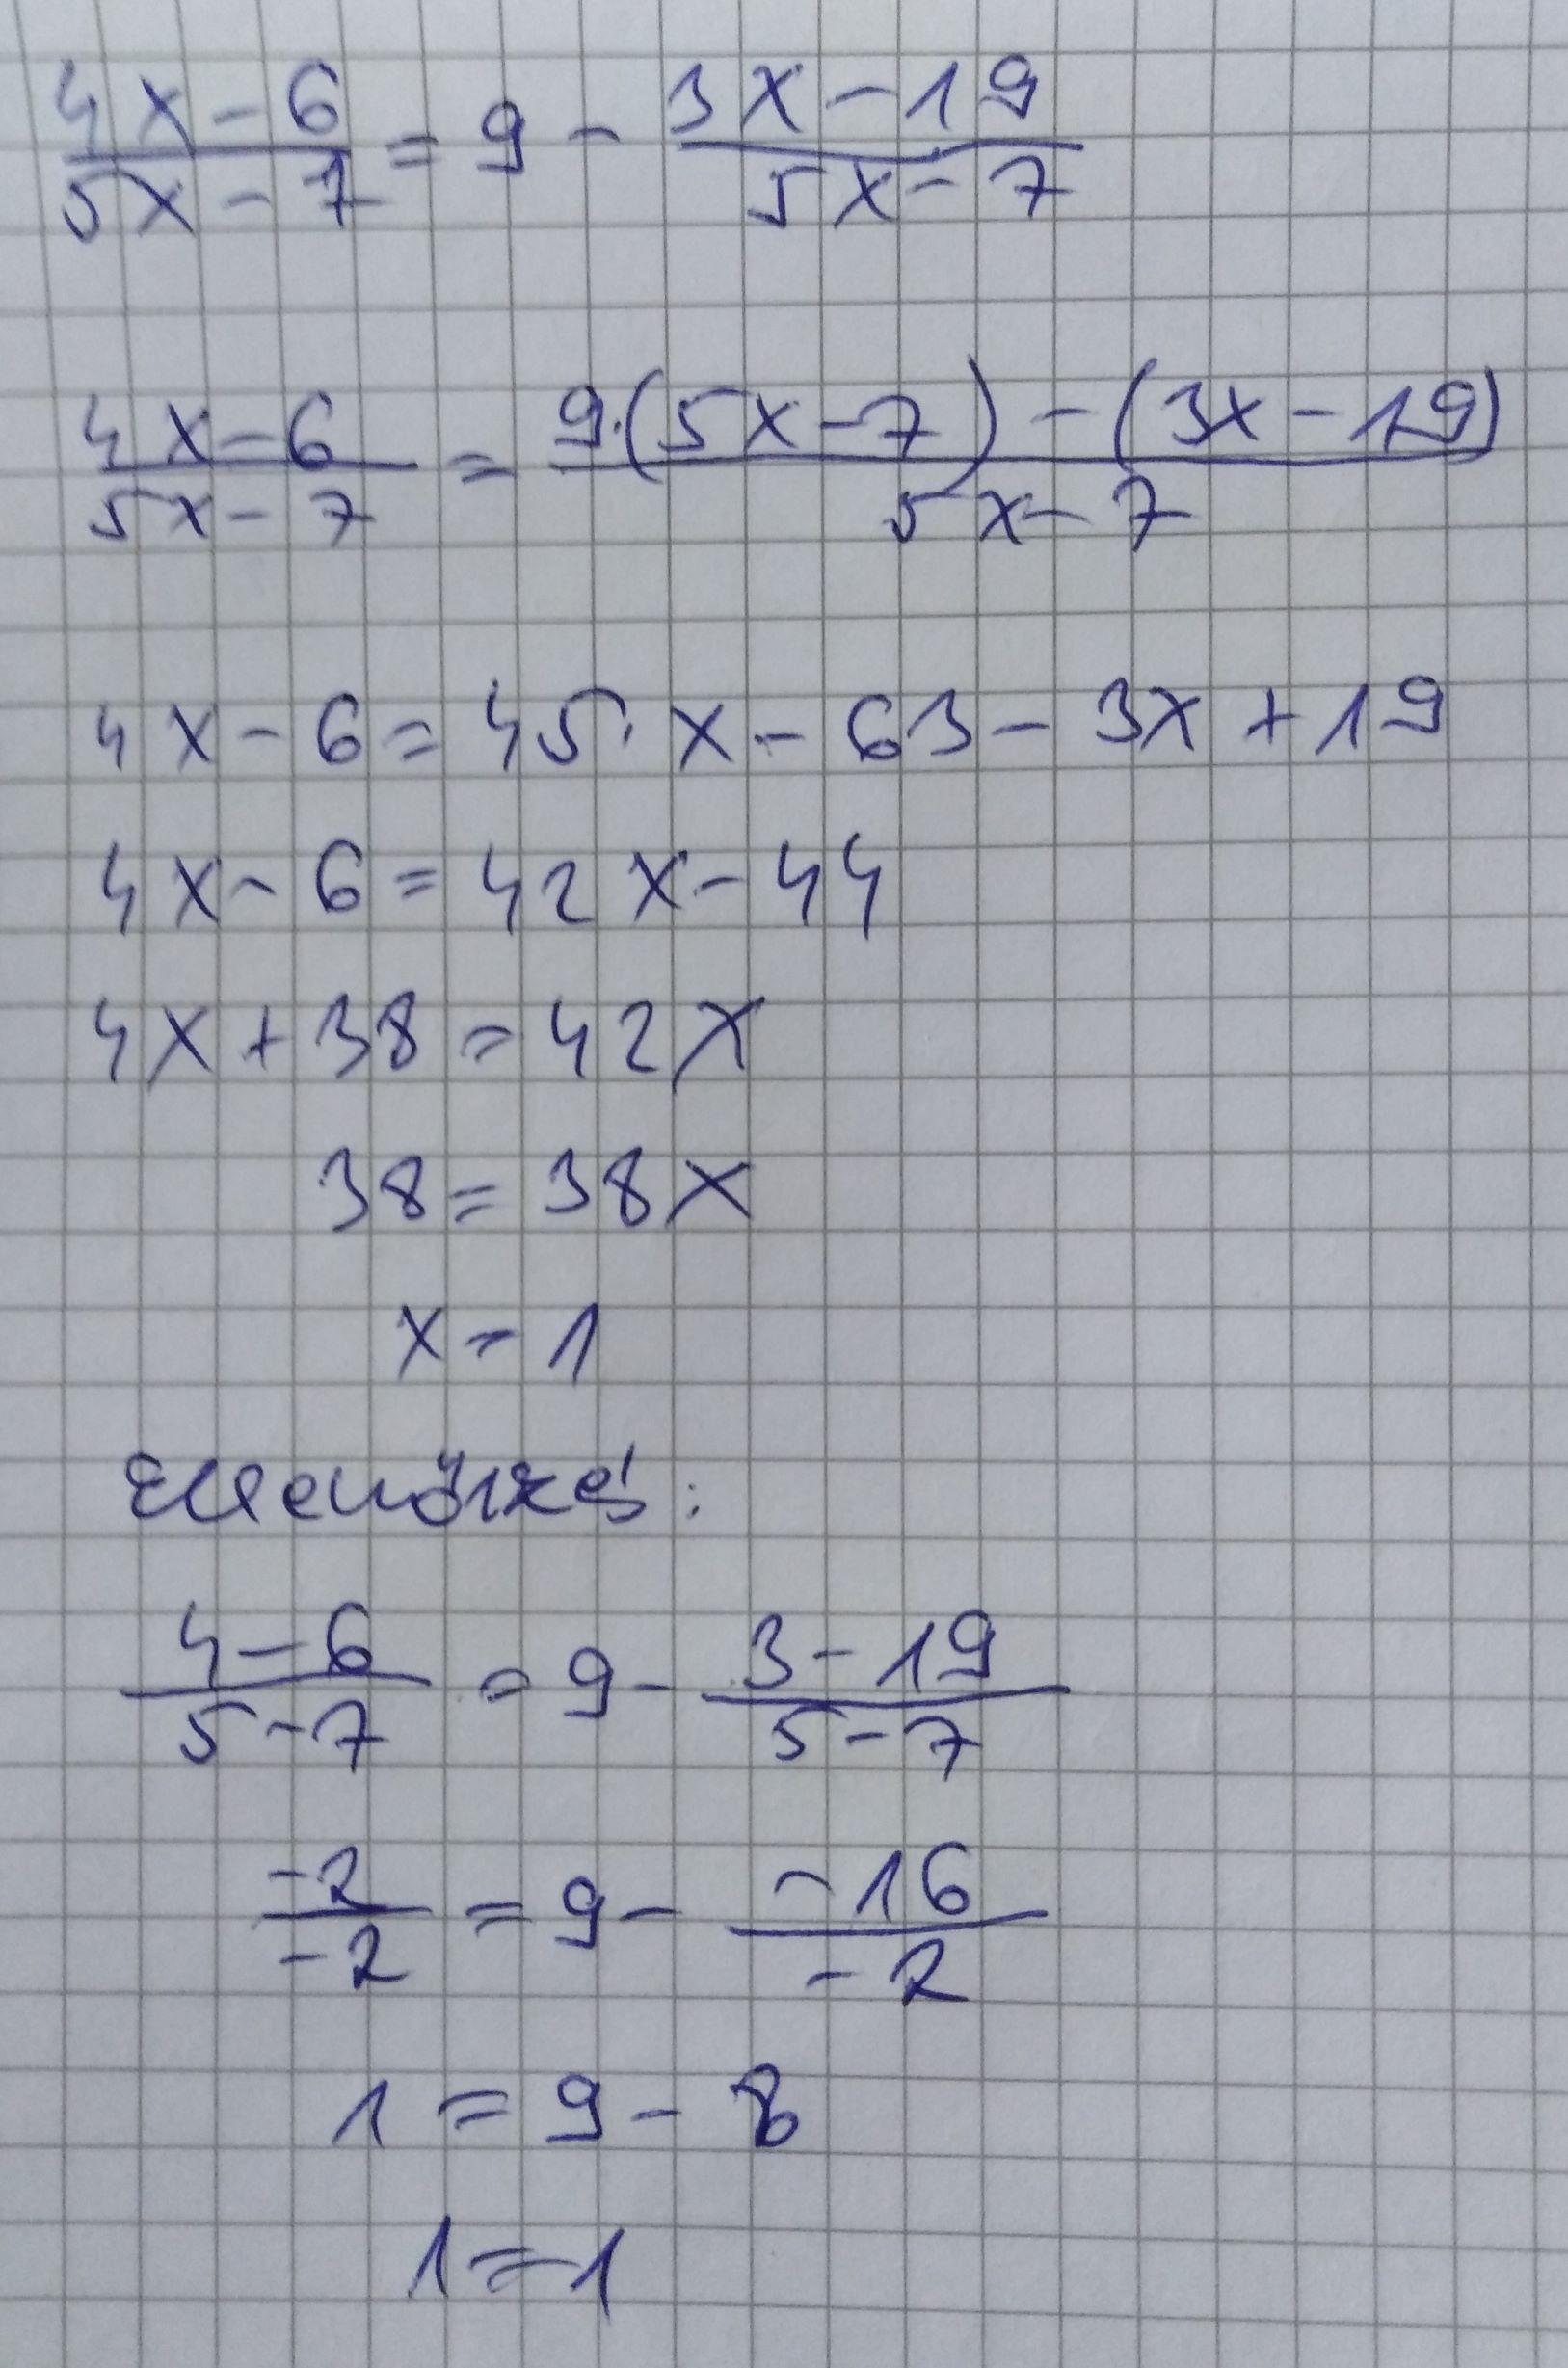 (4x-6)/(5x-7) = 9 - (3x-19)/(5x-7)
(4x-6)/(5x-7) = (9·(5x-7)-(3x-19))/(5x-7)
4x-6=45·x-63-3x+19
4x-6=42x-44
4x+38=42x
38=38x
x=1
Ellenőrzés:
(4-6)/(5-7) = 9 - (3-19)/(5-7)
(-2)/(-2) = 9 - (-16)/(-2)
1=9-8
1=1